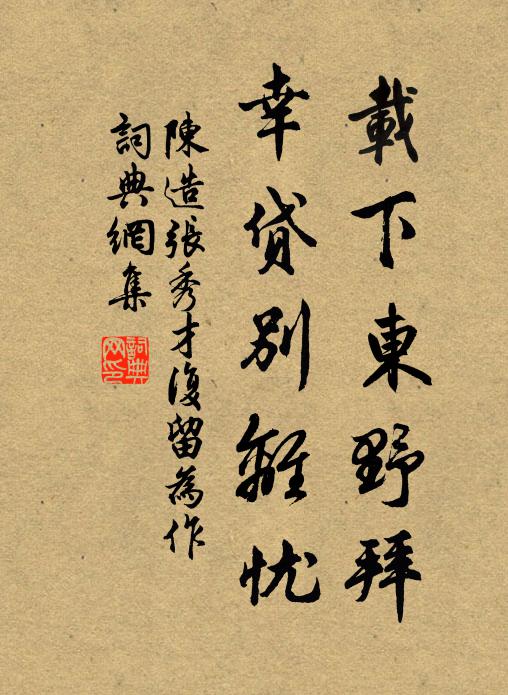 載下東野拜
幸貸別離忧
陳造張秀才復留為作
詞典網集
詞典網印